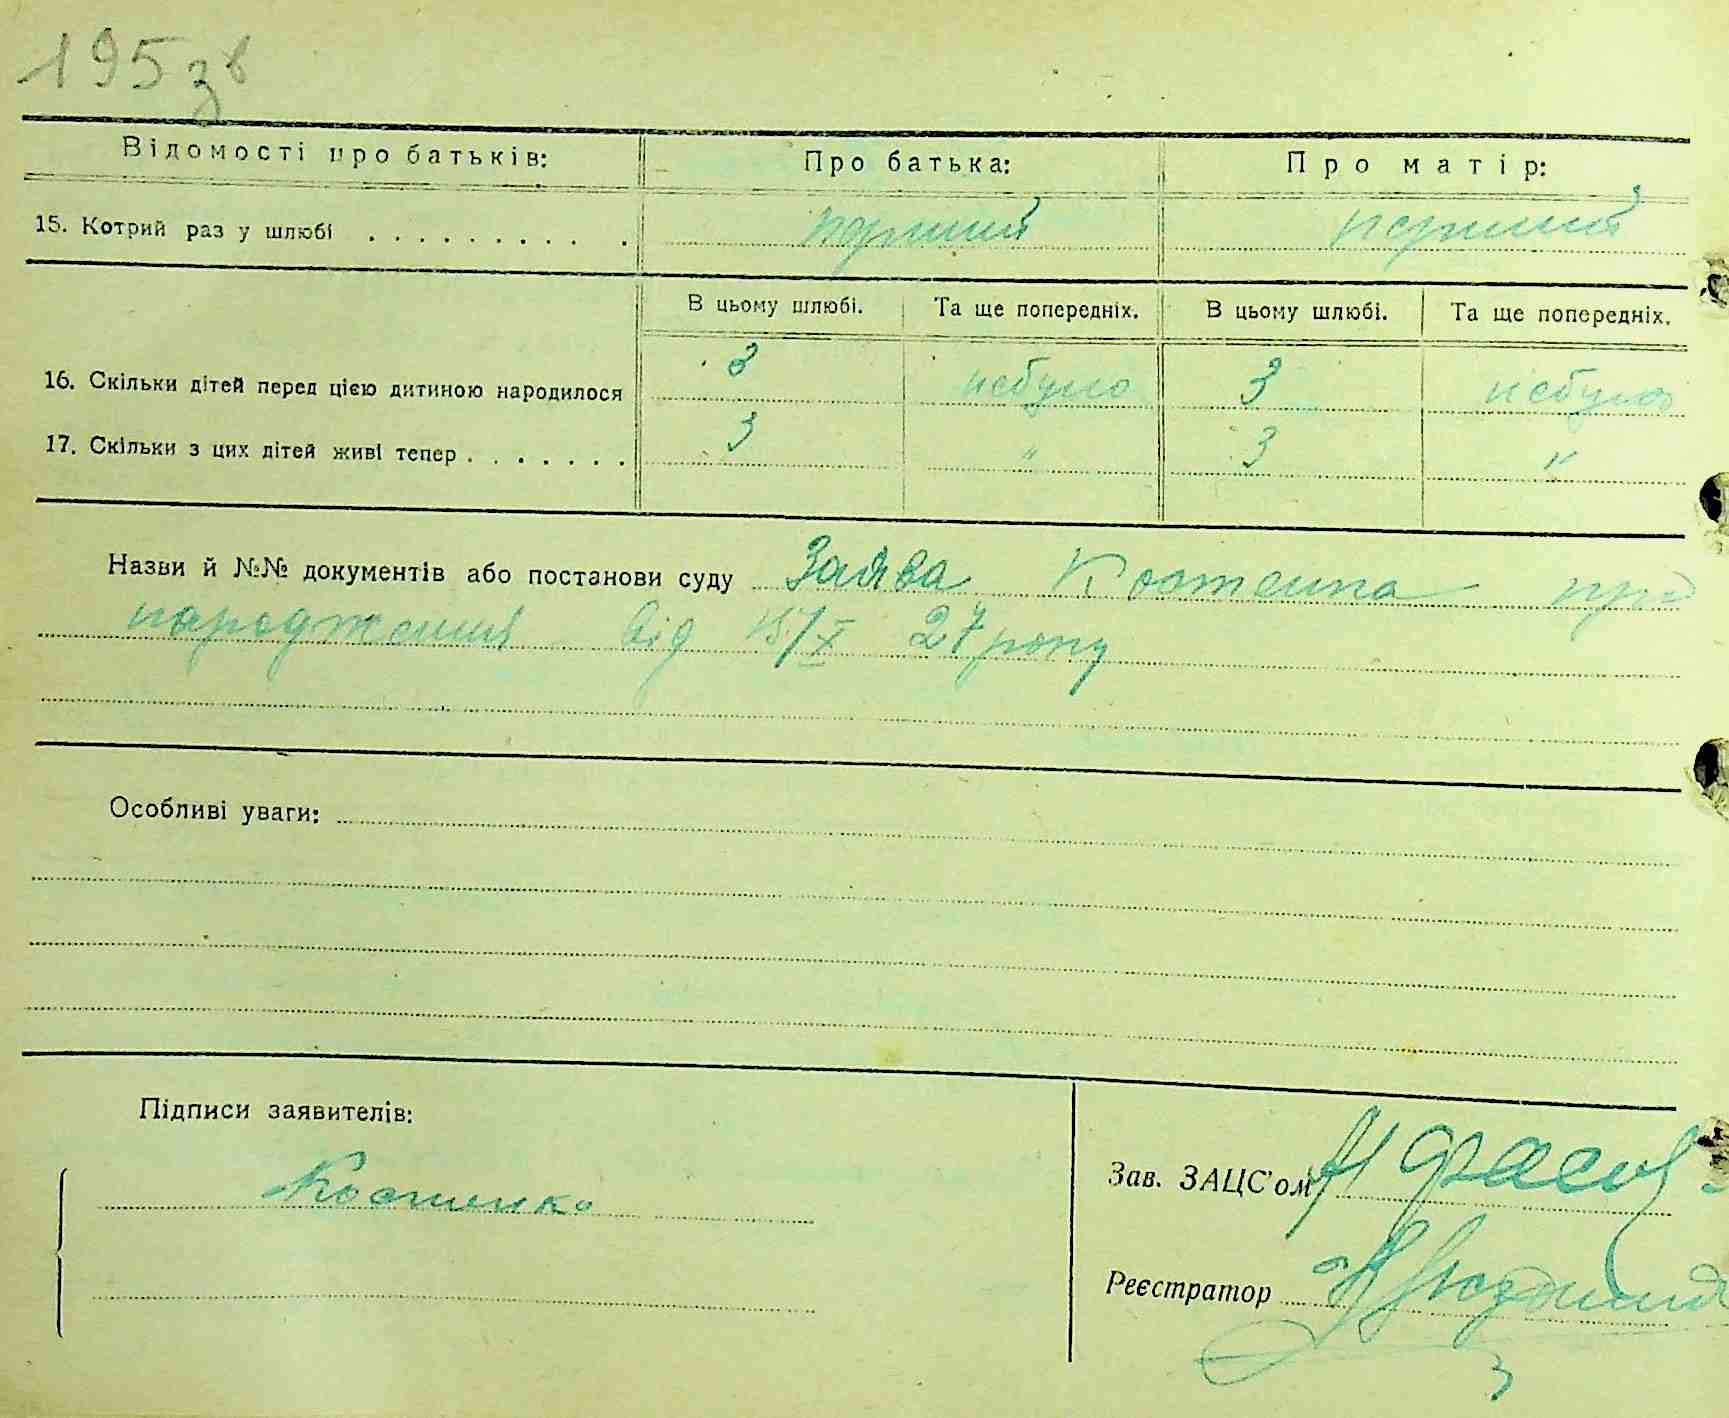 195 зв
Відомості про батьків: Про батька: Про матір:
15. Котрий раз у шлюбі . . . . . . . . . . перший перший
В цьому шлюбі. Та ще попередніх. В цьому шлюбі. Та ще попередніх.
16. Скільки дітей перед цією дитиною народилося 3 небуло 3 небуло
17. Скільки з цих дітей живі тепер . . . . . . . 3 " 3 "
Назви й №№ документів або постанови суду Заява Костенка про
народження від 15/X 27 року
Особливі уваги:
Підписи заявителів:
Костенко
Зав. ЗАЦС'ом
Реєстратор